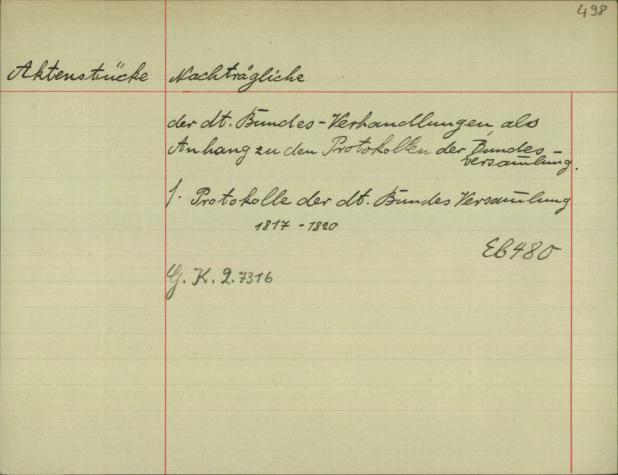 498
Aktenstücke Nachträgliche
der dt. Bundes-Verhandlungen, als
Anhang zu den Protokollen der Bundes-
versam̅lung.
s. Protokolle der dt. Bundes Versam̅lung
1817 - 1820
Eb480
G. K. 2.7316